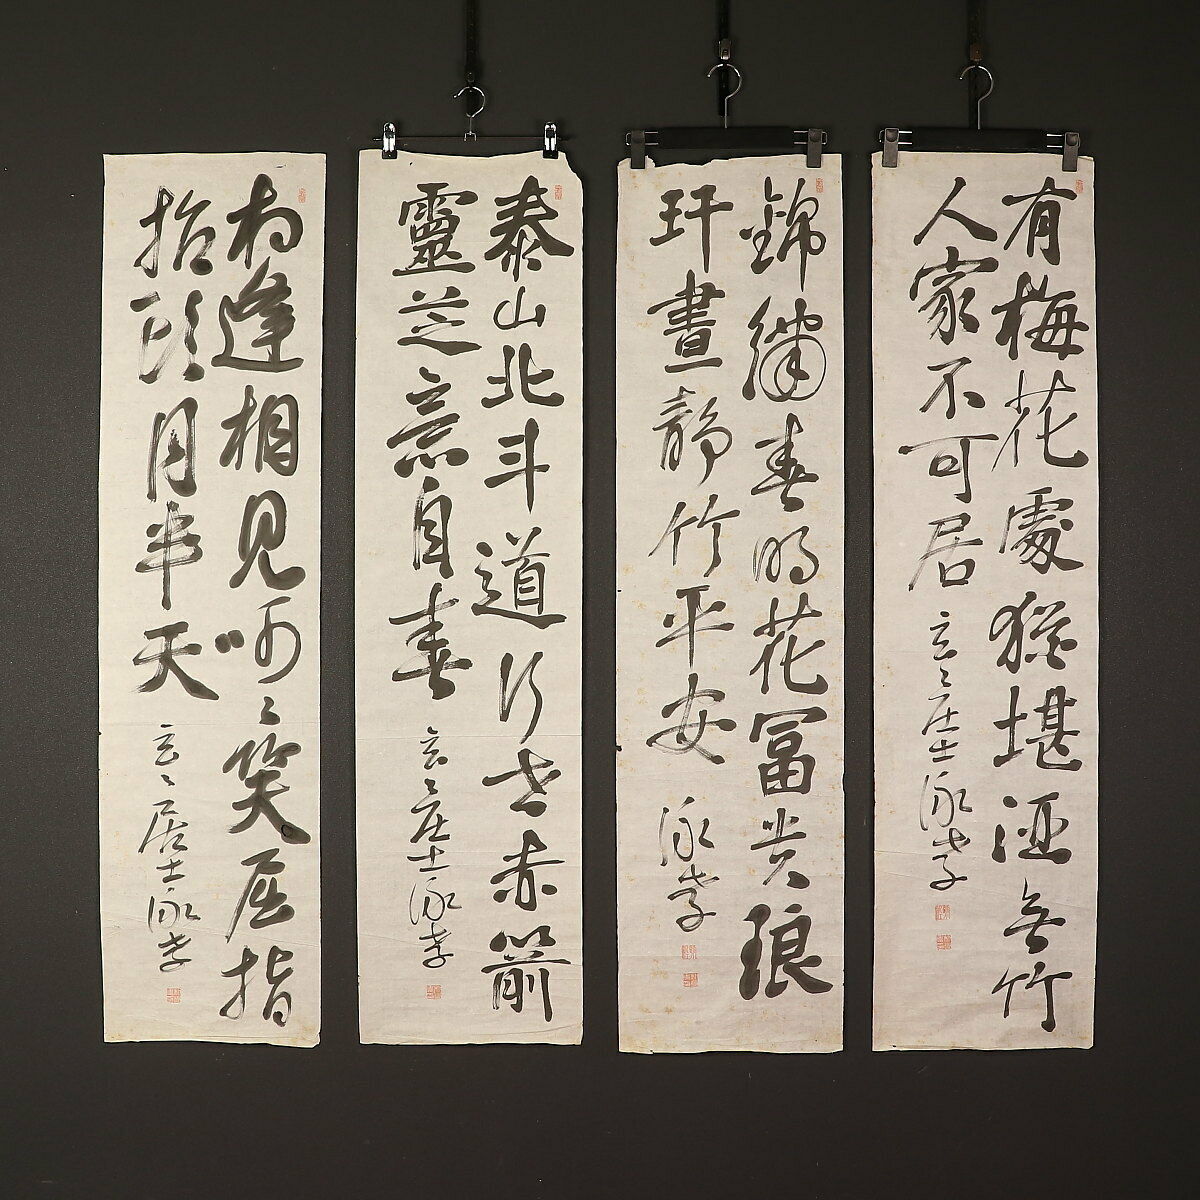 有梅花處猶堪酒無竹
人家不可居
玄々居士泳孝
錦繡春明花富貴琅
玕晝靜竹平安
泳孝
泰山北斗道行赤箭
靈芝意自春
玄々居士泳孝
相逢相見呵々笑屈指
抬頭月半天
玄々居士泳孝